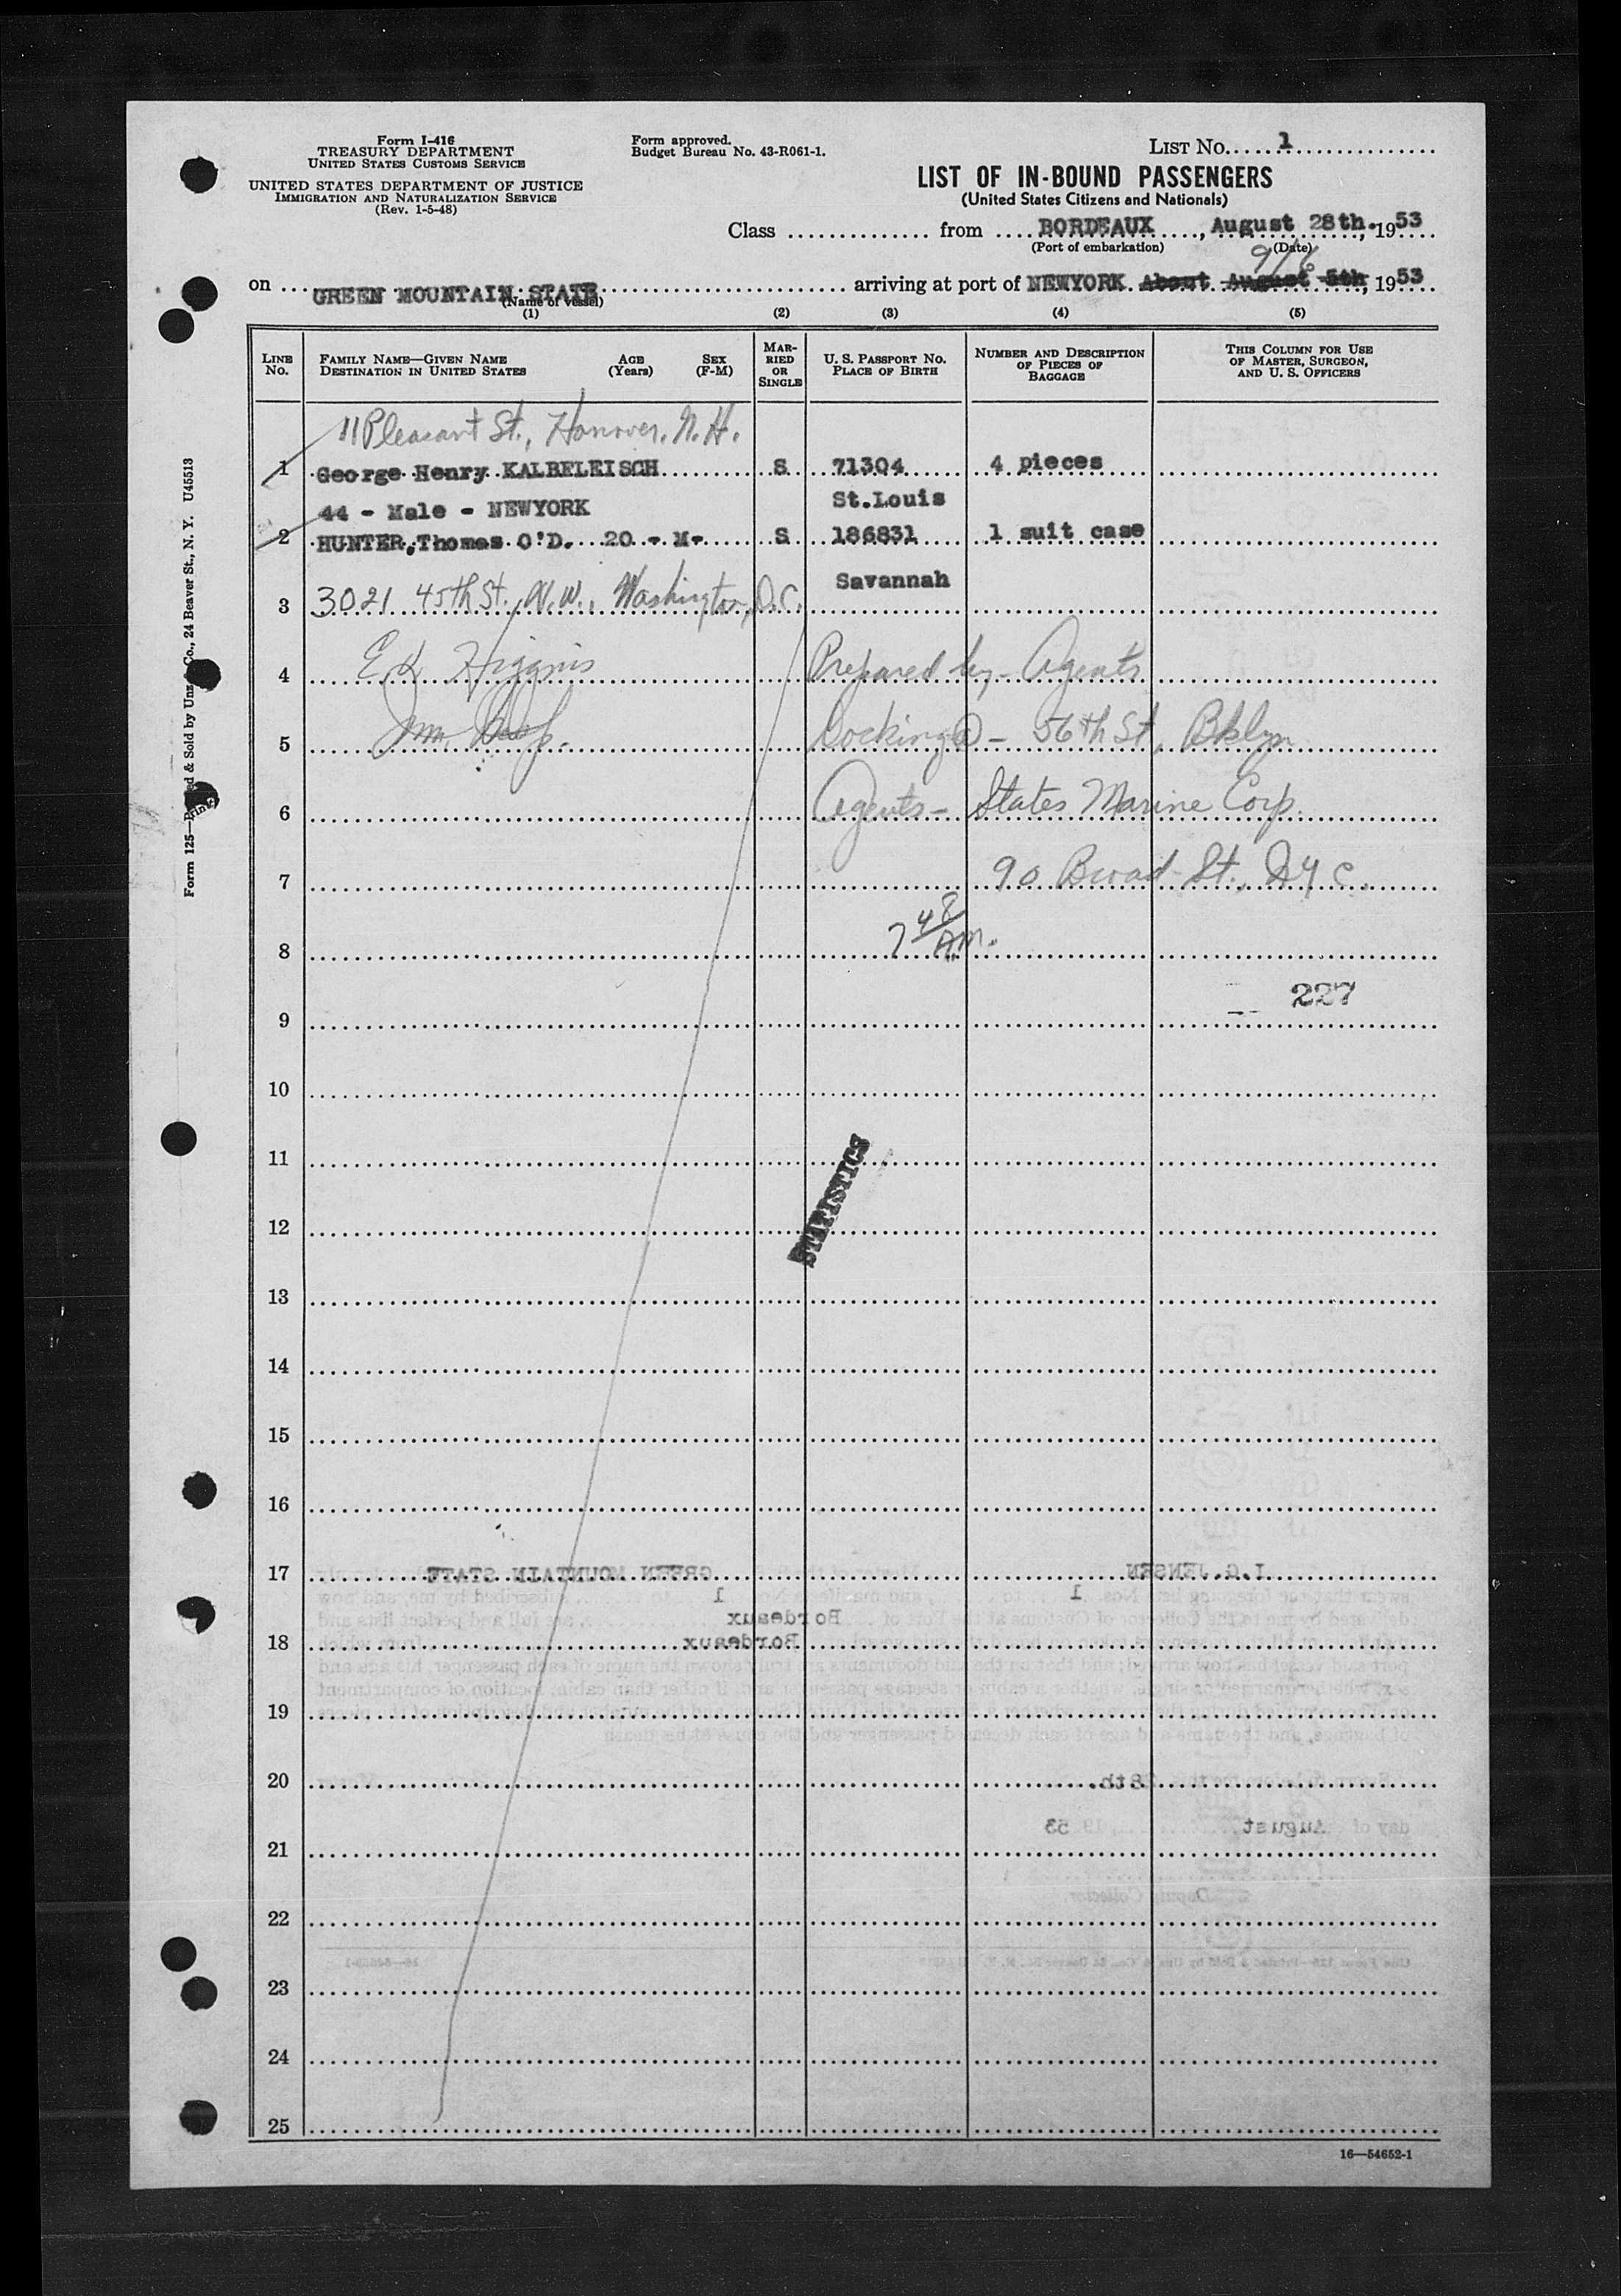 Form I-416
TREASURY DEPARTMENT
UNITED STATES CUSTOMS SERVICE
UNITED STATES DEPARTMENT OF JUSTICE
IMMIGRATION AND NATURALIZATION SERVICE
(Rev. 1-5-48)
Form approved.
Budget Bureau No. 43-R061-1.
LIST No. 1
LIST OF IN-BOUND PASSENGERS
(United States Citizens and Nationals)
Class from BORDEAUX, August 28th, 1953
(Port of embarkation) (Date)
9/6
on GREEN MOUNTAIN STATE arriving at port of NEWYORK About August 5th, 1953
(Name of vessel)
(1) (2) (3) (4) (5)
LINE No. FAMILY NAME—GIVEN NAME DESTINATION IN UNITED STATES AGE (Years) SEX (F-M) MARRIED OR SINGLE U. S. PASSPORT NO. PLACE OF BIRTH NUMBER AND DESCRIPTION OF PIECES OF BAGGAGE THIS COLUMN FOR USE OF MASTER, SURGEON, AND U. S. OFFICERS
11 Pleasant St., Hanover, N.H.
1 George Henry KALBELEISCH S 71304 4 pieces
44 - Male - NEWYORK St.Louis
2 HUNTER, Thomas O'D. 20 - M- S 186831 1 suit case
Savannah
3 3021 45th St., N.W., Washington, D.C.
4 E K Higgins Prepared by - Agents
5 Imm. Insp. Docking @ - 56th St, Bklyn
6 Agents - States Marine Corp.
7 90 Broad St., NYC.
8 7 48/AM.
227
9
10
11
STATISTICS
12
13
14
15
16
17 GREEN MOUNTAIN STATE I.G.JENSEN
1 1
Bordeaux
18 Bordeaux
19
20 28th.
day of August, 1953
21
Deputy Collector.
22
23
24
25
16—54652-1
Form 125—Printed & Sold by Unz & Co., 24 Beaver St., N. Y. U45513